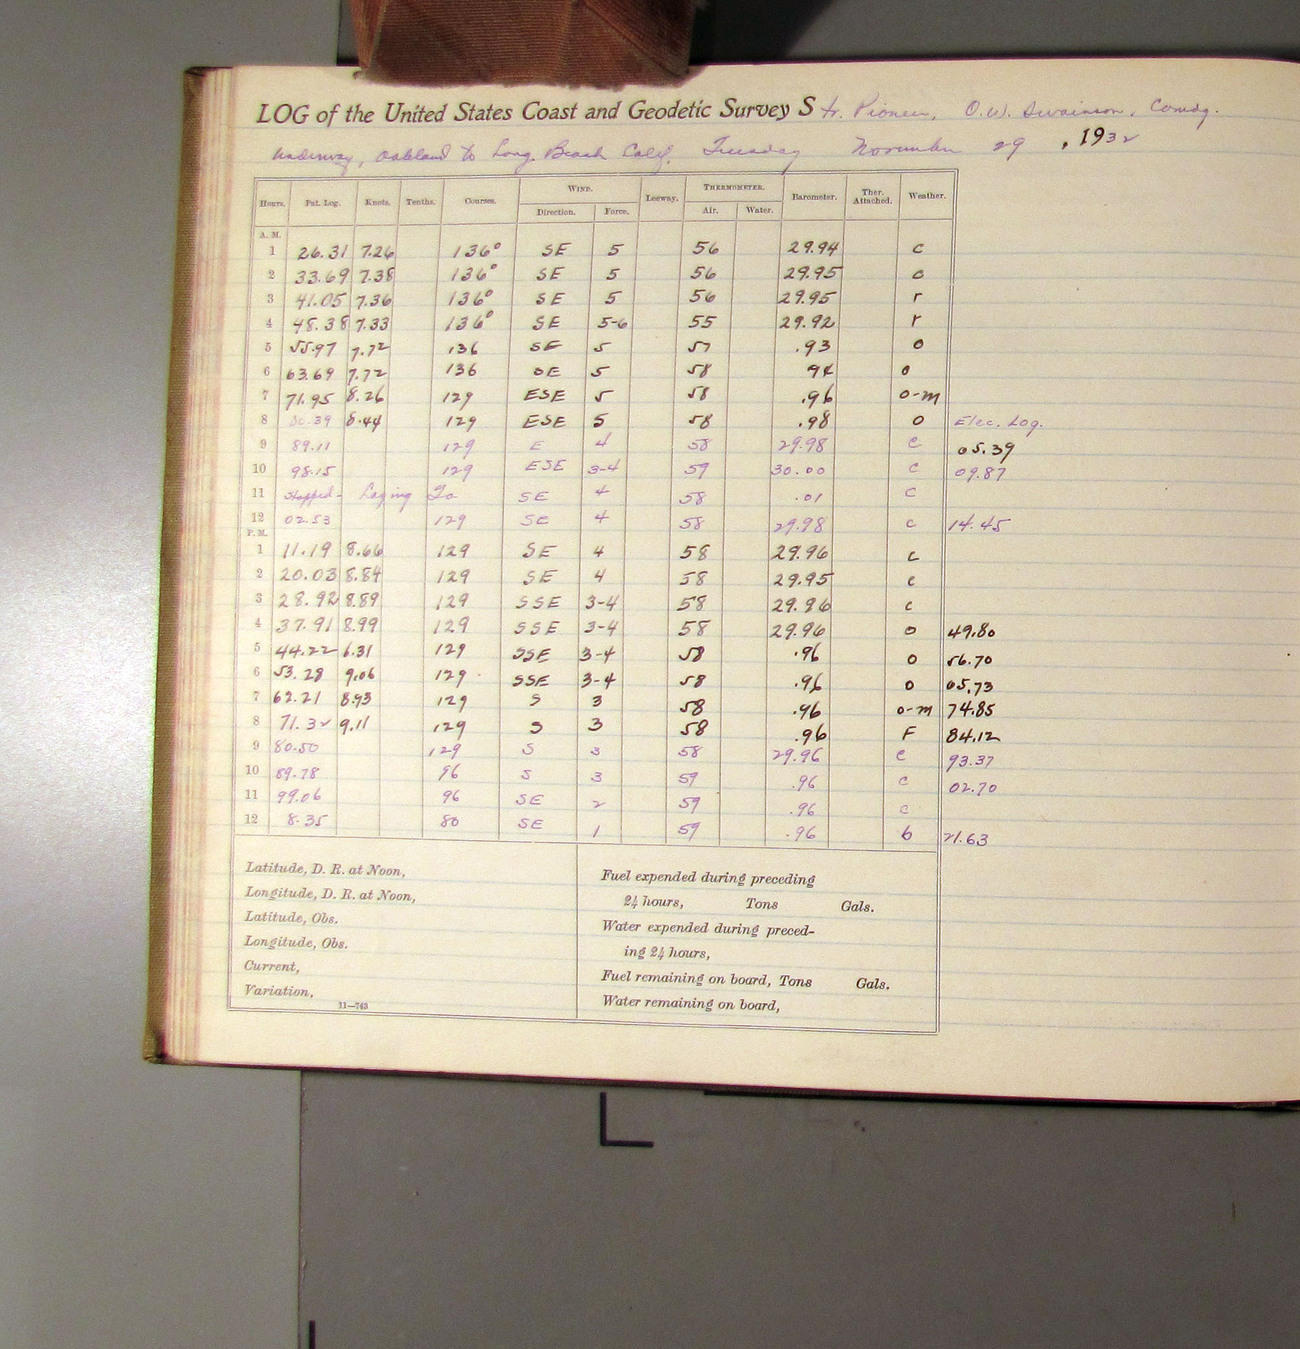 LOG of the United States Coast and Geodetic Survey Str. Pioneer, O.W. Swainson, Comdg.
Underway, Oakland to Long Beach Calif. Tuesday November 29, 1932
Hours. Pat. Log. Knots. Tenths. Courses. WIND. Direction. Force. Leeway. THERMOMETER. Air. Water. Barometer. Ther. Attached. Weather.
A. M.
1 26.31 7.26 136° SE 5 56 29.94 c
2 33.69 7.38 136° SE 5 56 29.95 c
3 41.05 7.36 136° SE 5 56 29.95 r
4 48.38 7.33 136° SE 5-6 55 29.92 r
5 55.97 7.72 136 SE 5 57 .93 o
6 63.69 7.72 136 SE 5 58 94 o
7 71.95 8.26 129 ESE 5 58 .96 o-m
8 80.39 8.44 129 ESE 5 58 .98 o Elec. Log.
9 89.11 129 E 4 58 29.98 c 05.39
10 98.15 129 ESE 3-4 59 30.00 c 09.87
11 Stopped- Laying To SE 4 58 .01 c
12 02.53 129 SE 4 58 29.98 c 14.45
P. M.
1 11.19 8.66 129 SE 4 58 29.96 c
2 20.03 8.84 129 SE 4 58 29.95 c
3 28.92 8.89 129 SSE 3-4 58 29.96 c
4 37.91 8.99 129 SSE 3-4 58 29.96 o 49.80
5 44.22 6.31 129 SSE 3-4 58 .96 o 56.70
6 53.28 9.06 129 SSE 3-4 58 .96 o 65.73
7 62.21 8.93 129 S 3 58 .96 o-m 74.85
8 71.32 9.11 129 S 3 58 .96 F 84.12
9 80.50 129 S 3 58 29.96 c 93.37
10 89.78 96 S 3 59 .96 c 02.70
11 99.06 96 SE 2 59 .96 c
12 8.35 80 SE 1 59 .96 b 21.63
Latitude, D. R. at Noon,
Longitude, D. R. at Noon,
Latitude, Obs.
Longitude, Obs.
Current,
Variation,
11—763
Fuel expended during preceding
24 hours, Tons Gals.
Water expended during preced-
ing 24 hours,
Fuel remaining on board, Tons Gals.
Water remaining on board,